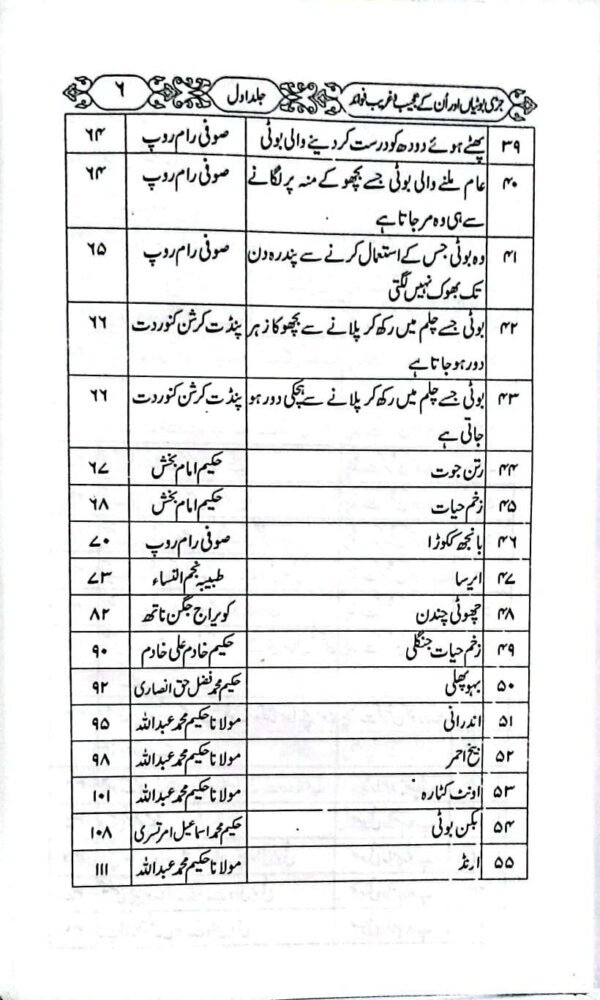 جڑی بوٹیاں اور اُن کے عجیب و غریب فوائد جلد اول ۶
۳۹ پھٹے ہوئے دودھ کو درست کر دینے والی بوٹی صوفی رام روپ ۶۴
۴۰ عام ملنے والی بوٹی جسے بچھو کے منہ پر لگانے صوفی رام روپ ۶۴
سے ہی وہ مر جاتا ہے
۴۱ وہ بوٹی جس کے استعمال کرنے سے پندرہ دن صوفی رام روپ ۶۵
تک بھوک نہیں لگتی
۴۲ بوٹی جسے چلم میں رکھ کر پلانے سے بچھو کا زہر پنڈت کرشن کنور دت ۶۶
دور ہو جاتا ہے
۴۳ بوٹی جسے چلم میں رکھ کر پلانے سے ہچکی دور ہو پنڈت کرشن کنور دت ۶۶
جاتی ہے
۴۴ رتن جوت حکیم امام بخش ۶۷
۴۵ زخم حیات حکیم امام بخش ۶۸
۴۶ بانجھ ککوڑا صوفی رام روپ ۷۰
۴۷ ایرسا طبیبہ نجم النساء ۷۳
۴۸ چھوٹی چندن کویراج جگن ناتھ ۸۲
۴۹ زخم حیات جنگلی حکیم خادم علی خادم ۹۰
۵۰ بہوپھلی حکیم محمد فضل حق انصاری ۹۲
۵۱ اندرانی مولانا حکیم محمد عبداللہ ۹۵
۵۲ بیخ احمر مولانا حکیم محمد عبداللہ ۹۸
۵۳ اونٹ کٹارہ مولانا حکیم محمد عبداللہ ۱۰۱
۵۴ بکن بوٹی حکیم محمد اسماعیل امرتسری ۱۰۸
۵۵ ارنڈ مولانا حکیم محمد عبداللہ ۱۱۱